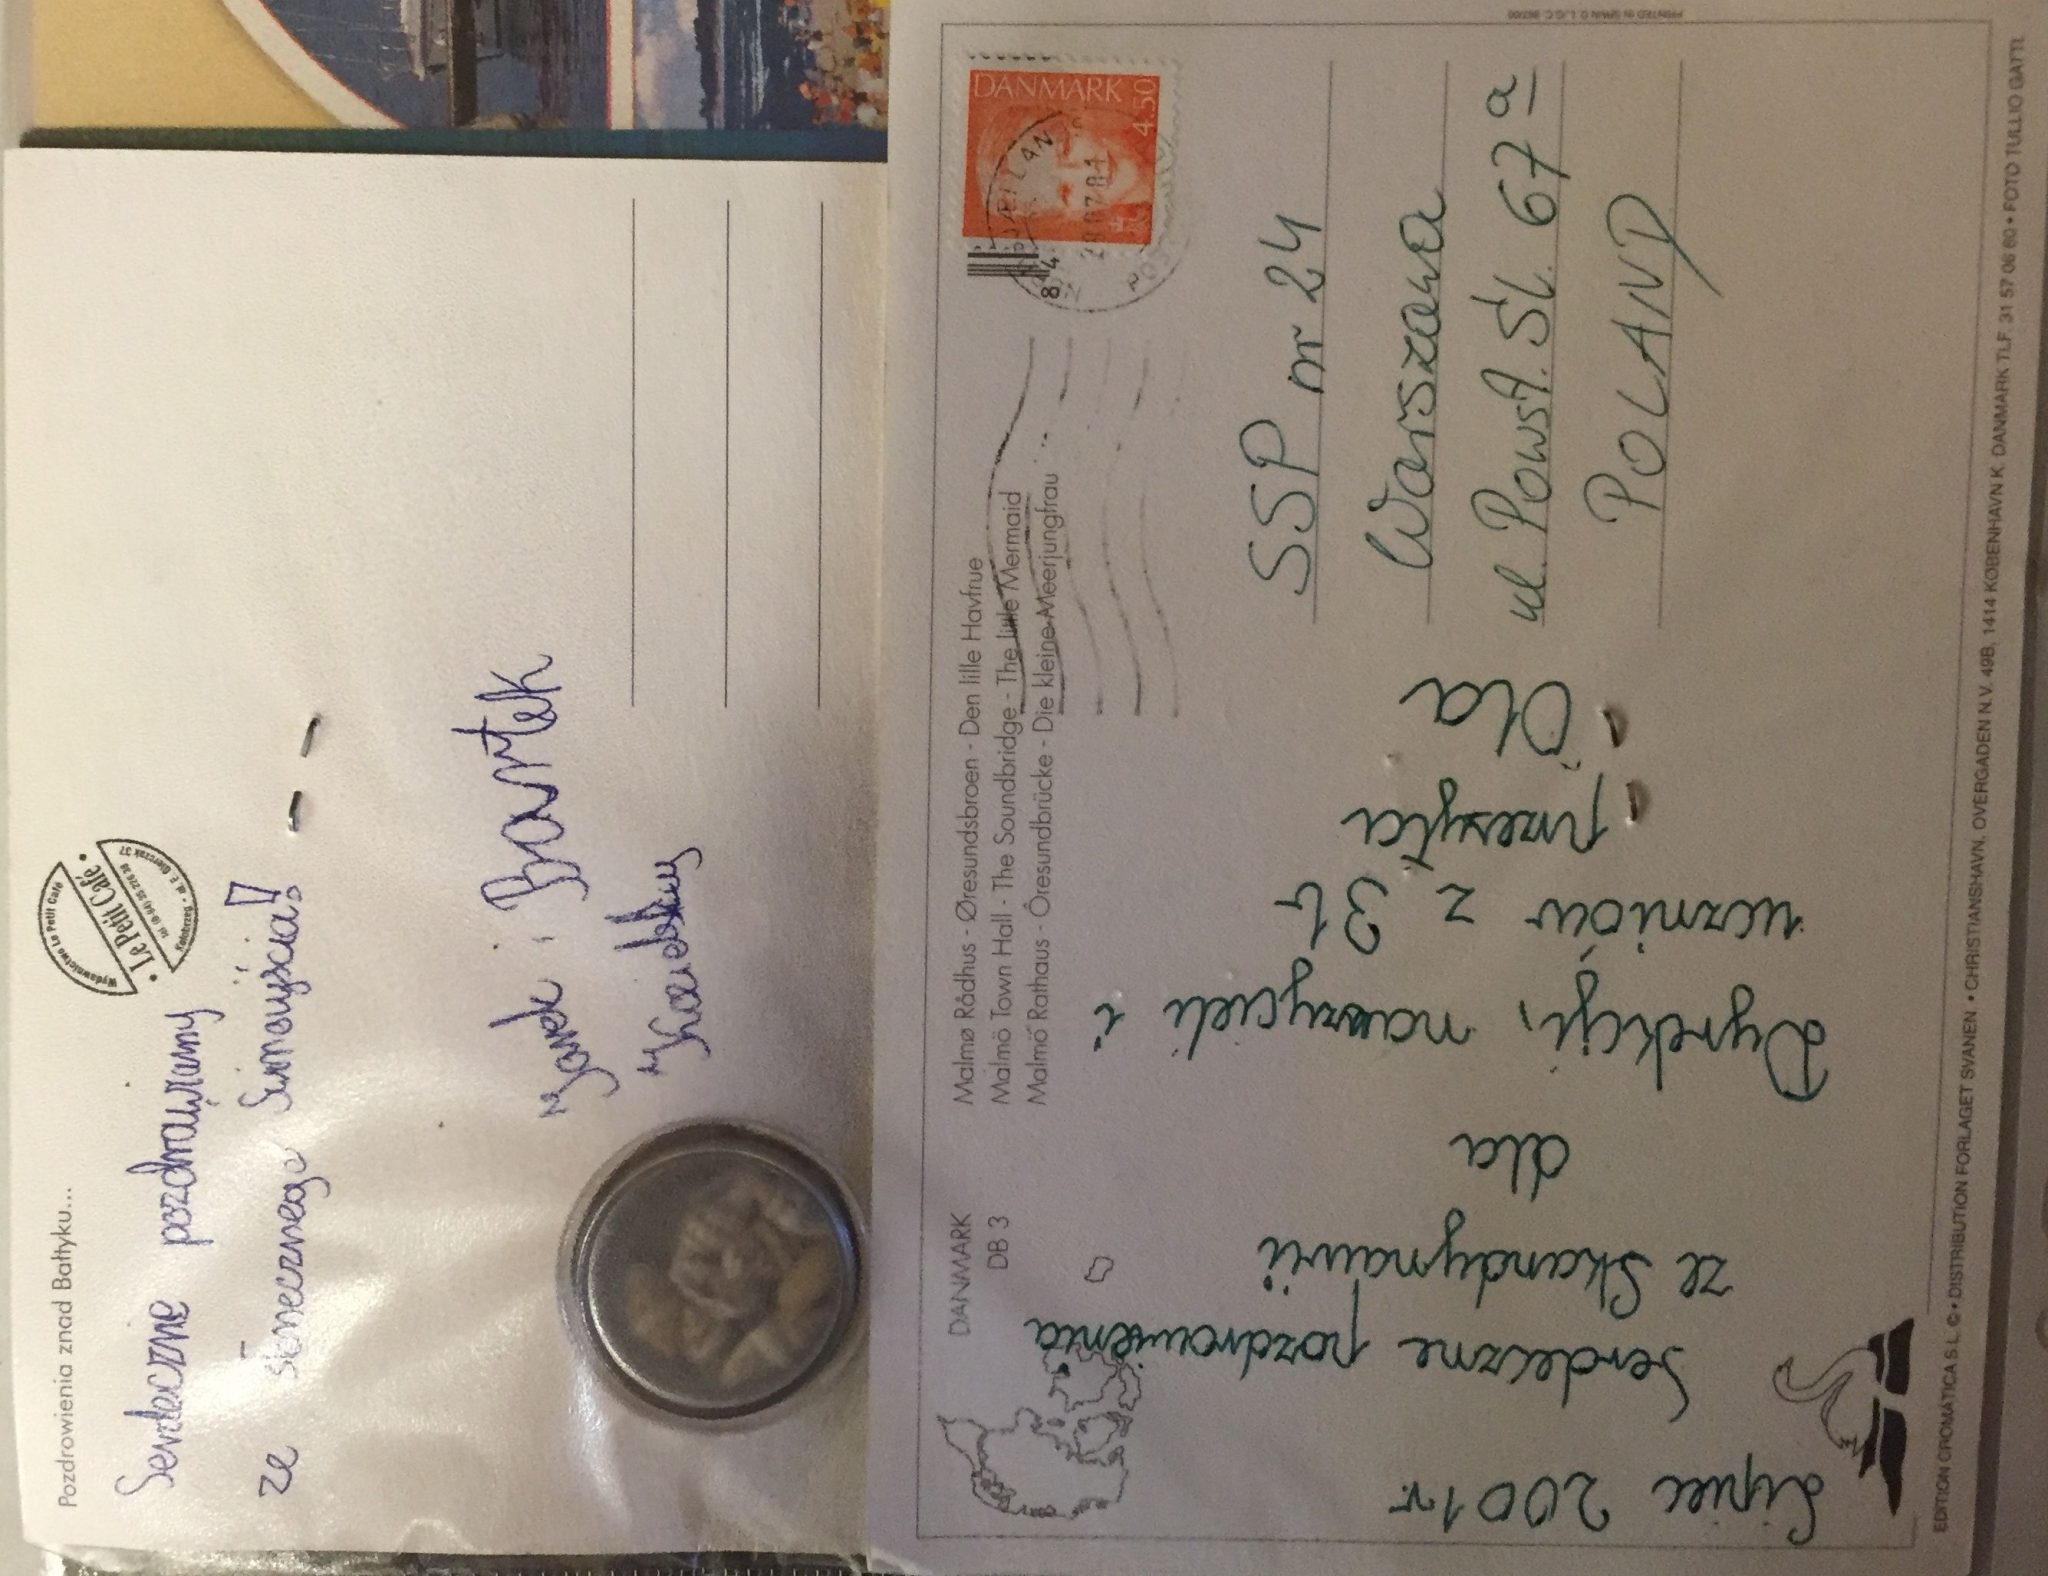 Pozdrowienia znad Bałtyku...
Wydawnictwo Le Petit Café
Le Petit Café
Kołobrzeg
Serdeczne pozdrawiamy
ze słonecznego Świnoujścia!
Janek i Bartek
DANMARK
DB 3
Malmø Rådhus - Øresundsbroen - Den lille Havfrue
Malmö Town Hall - The Soundbridge - The little Mermaid
Malmö Rathaus - Öresundbrücke - Die kleine Meerjungfrau
DANMARK
4.50
Lipiec 2001r.
Serdeczne pozdrowienia
ze Skandynawii
dla
Dyrekcji, nauczycieli i
uczniów z 3b
przesyła
Ola
SSP nr 24
Warszawa
ul. Powst. Śl. 67a
POLAND
EDITION CROMATICA S.L. © • DISTRIBUTION FORLAGET SVANEN • CHRISTIANSHAVN, OVERGADEN N.V. 49B, 1414 KØBENHAVN K. DANMARK TLF. 31 57 06 60 • FOTO TULLIO GATTI